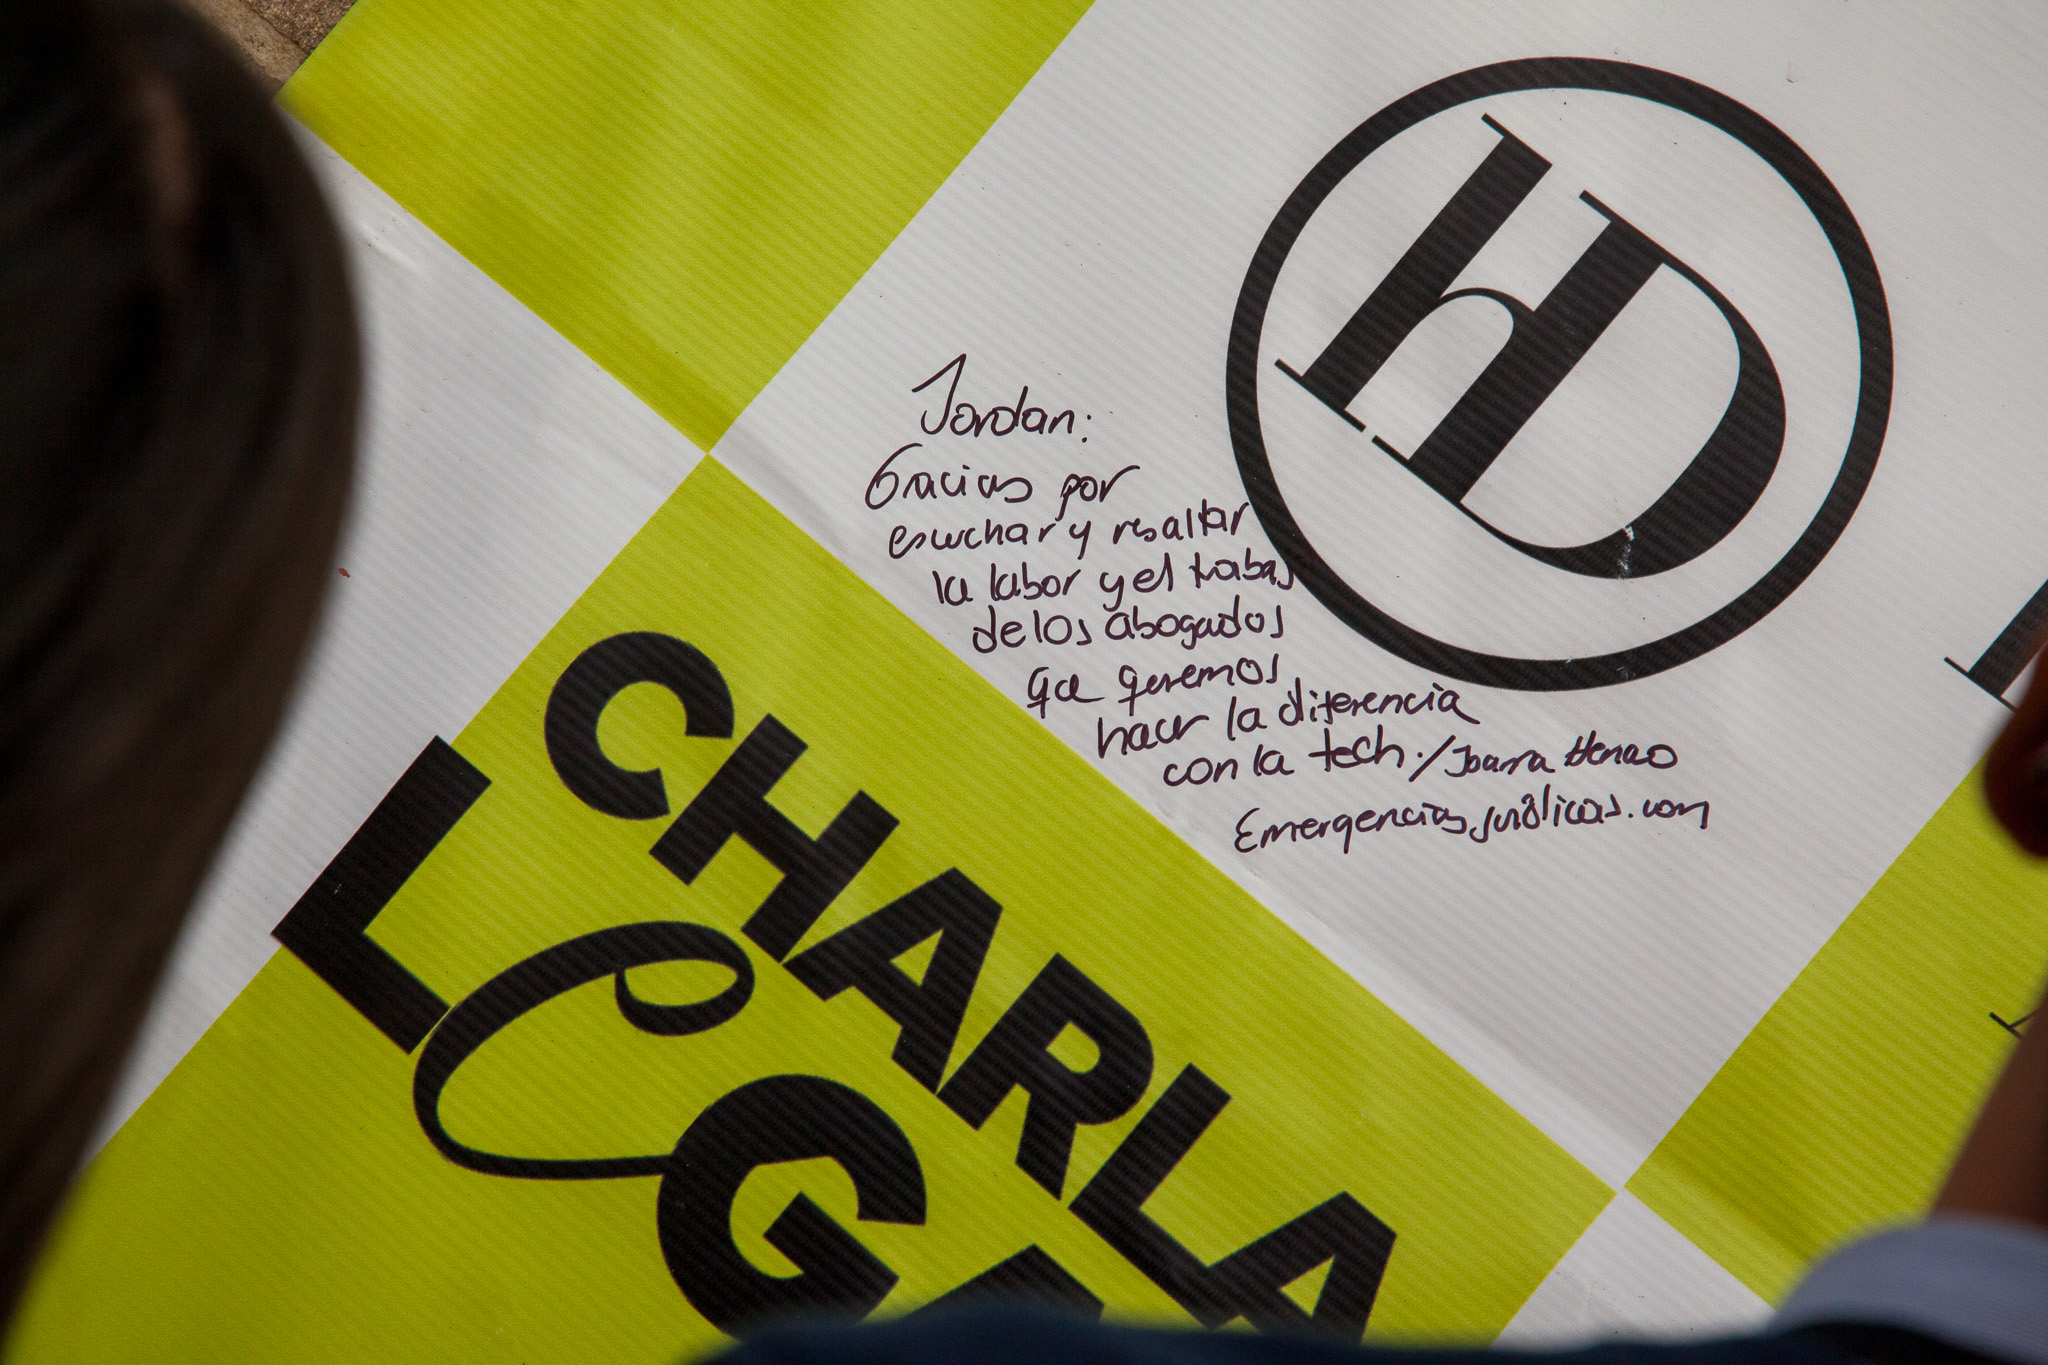 HD
Jordan:
Gracias por
escuchar y resaltar
la labor y el trabajo
de los abogados
que queremos
hacer la diferencia
con la tech. / Joanna Henao
Emergenciasjuridicas.com
CHARLA
LEGA